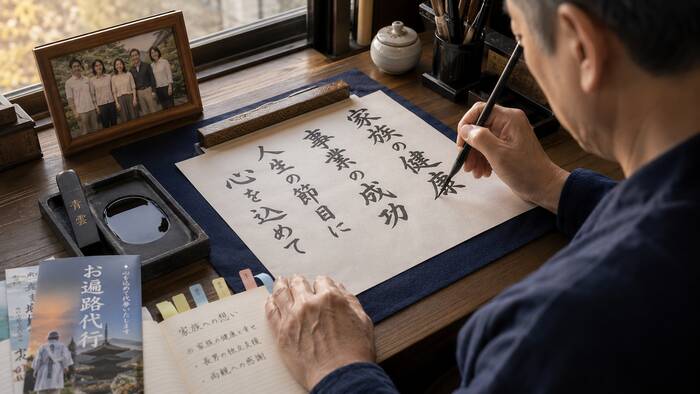 家族の健康
事業の成功
人生の節目に
心を込めて
青雲
お遍路代行
家族への想い
家族の健康と幸せ
・長男の独立支援
・両親への感謝